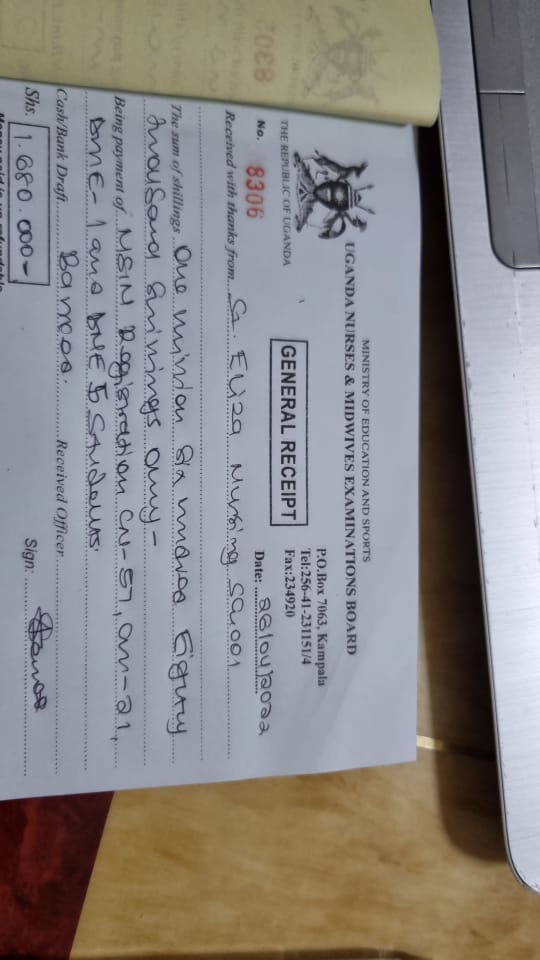 MINISTRY OF EDUCATION AND SPORTS
UGANDA NURSES & MIDWIVES EXAMINATIONS BOARD
THE REPUBLIC OF UGANDA
P.O.Box 7063, Kampala
Tel:256-41-231151/4
Fax:234920
GENERAL RECEIPT
No. 8306
Date: 28/04/2022
Received with thanks from St. Eliza Nursing School
The sum of shillings One million six hundred Eighty
thousand shillings only -
Being payment of NSIN Registration CN-57, CM-21,
DME-1 and DNE 5 students.
Cash/Bank Draft Received Officer
Shs. 1.680.000- Sign: